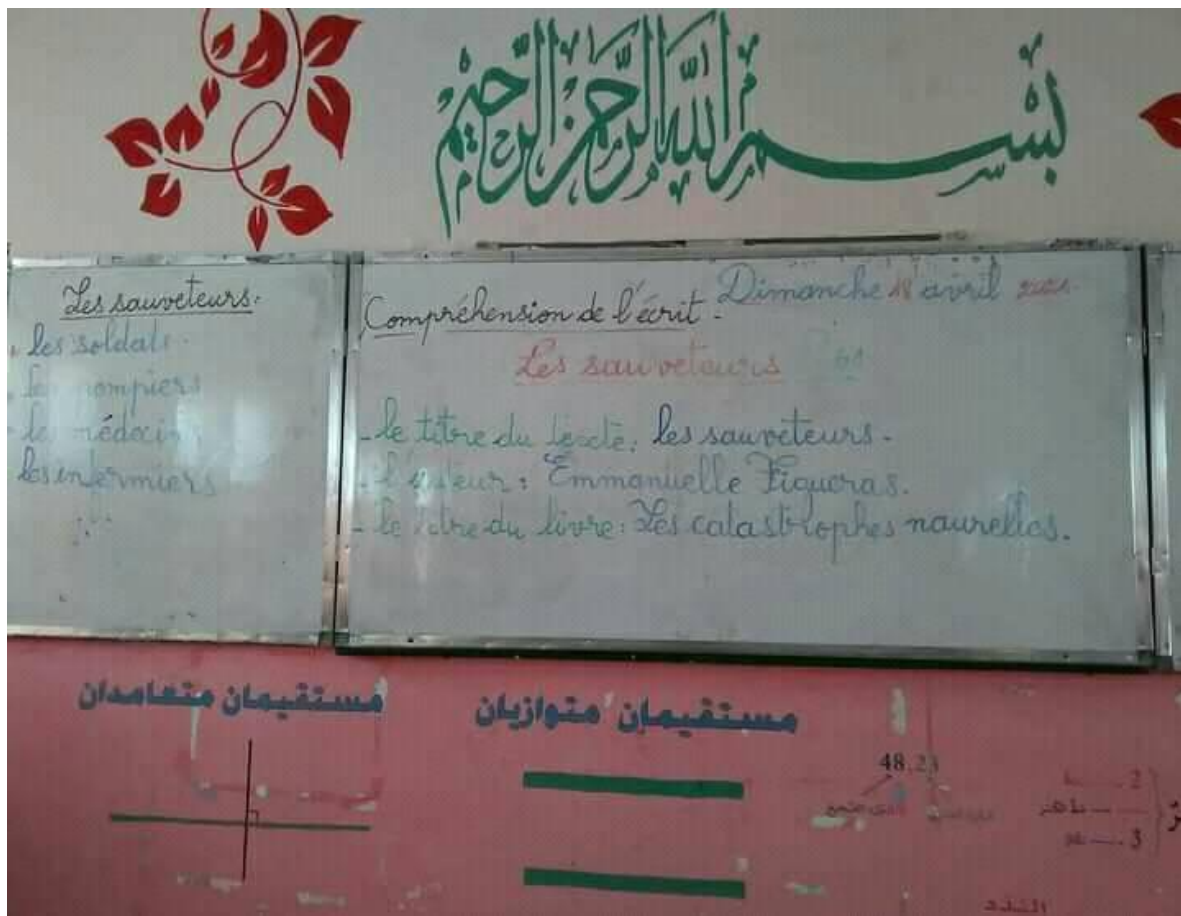 بسم الله الرحمن الرحيم
Les sauveteurs.
. les soldats.
- les pompiers
- les médecins
les infirmiers
Dimanche 18 avril 2021.
Compréhension de l'écrit.
Les sauveteurs
- le titre du texte: les sauveteurs.
- l'auteur: Emmanuelle Figueras.
- le titre du livre: Les catastrophes naurelles.
مستقيمان متعامدان
مستقيمان متوازيان
48,23
2
3